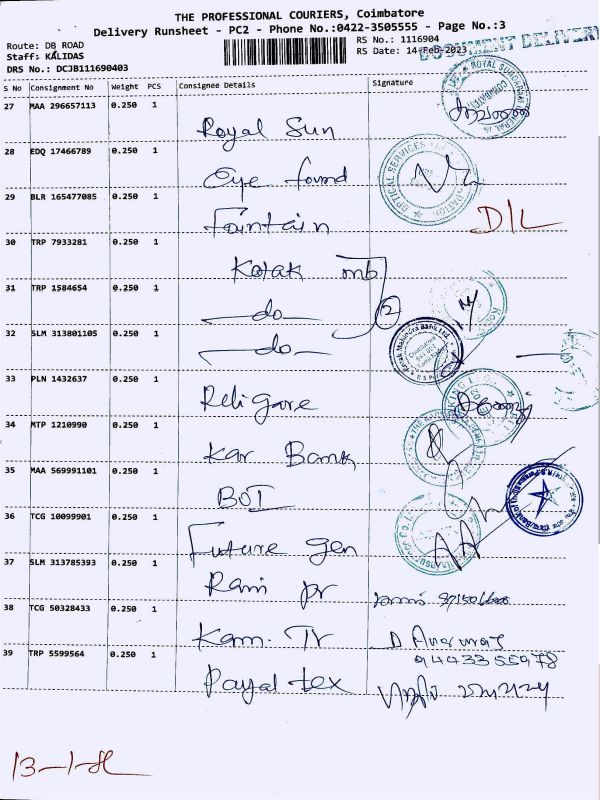 THE PROFESSIONAL COURIERS, Coimbatore
Delivery Runsheet - PC2 - Phone No.:0422-3505555 - Page No.:3
Route: DB ROAD
RS No.: 1116904
Staff: KALIDAS
RS Date: 14-Feb-2023
DRS No.: DCJB111690403
DOCUMENT DELIVERY
S No Consignment No Weight PCS Consignee Details Signature
27 MAA 296657113 0.250 1
Royal Sun
28 EDQ 17466789 0.250 1
Eye found
29 BLR 165477085 0.250 1
Fountain D/L
30 TRP 7933281 0.250 1
Kotak mb
31 TRP 1584654 0.250 1
do 2
32 SLM 313801105 0.250 1
do
33 PLN 1432637 0.250 1
Religare
34 MTP 1210990 0.250 1
Kar Bank
35 MAA 569991101 0.250 1
BOI
36 TCG 10099901 0.250 1
Future gen
37 SLM 313785393 0.250 1
Ram pr
38 TCG 50328433 0.250 1
Kam. Tr
9443355978
39 TRP 5599564 0.250 1
Payal tex
13-1-